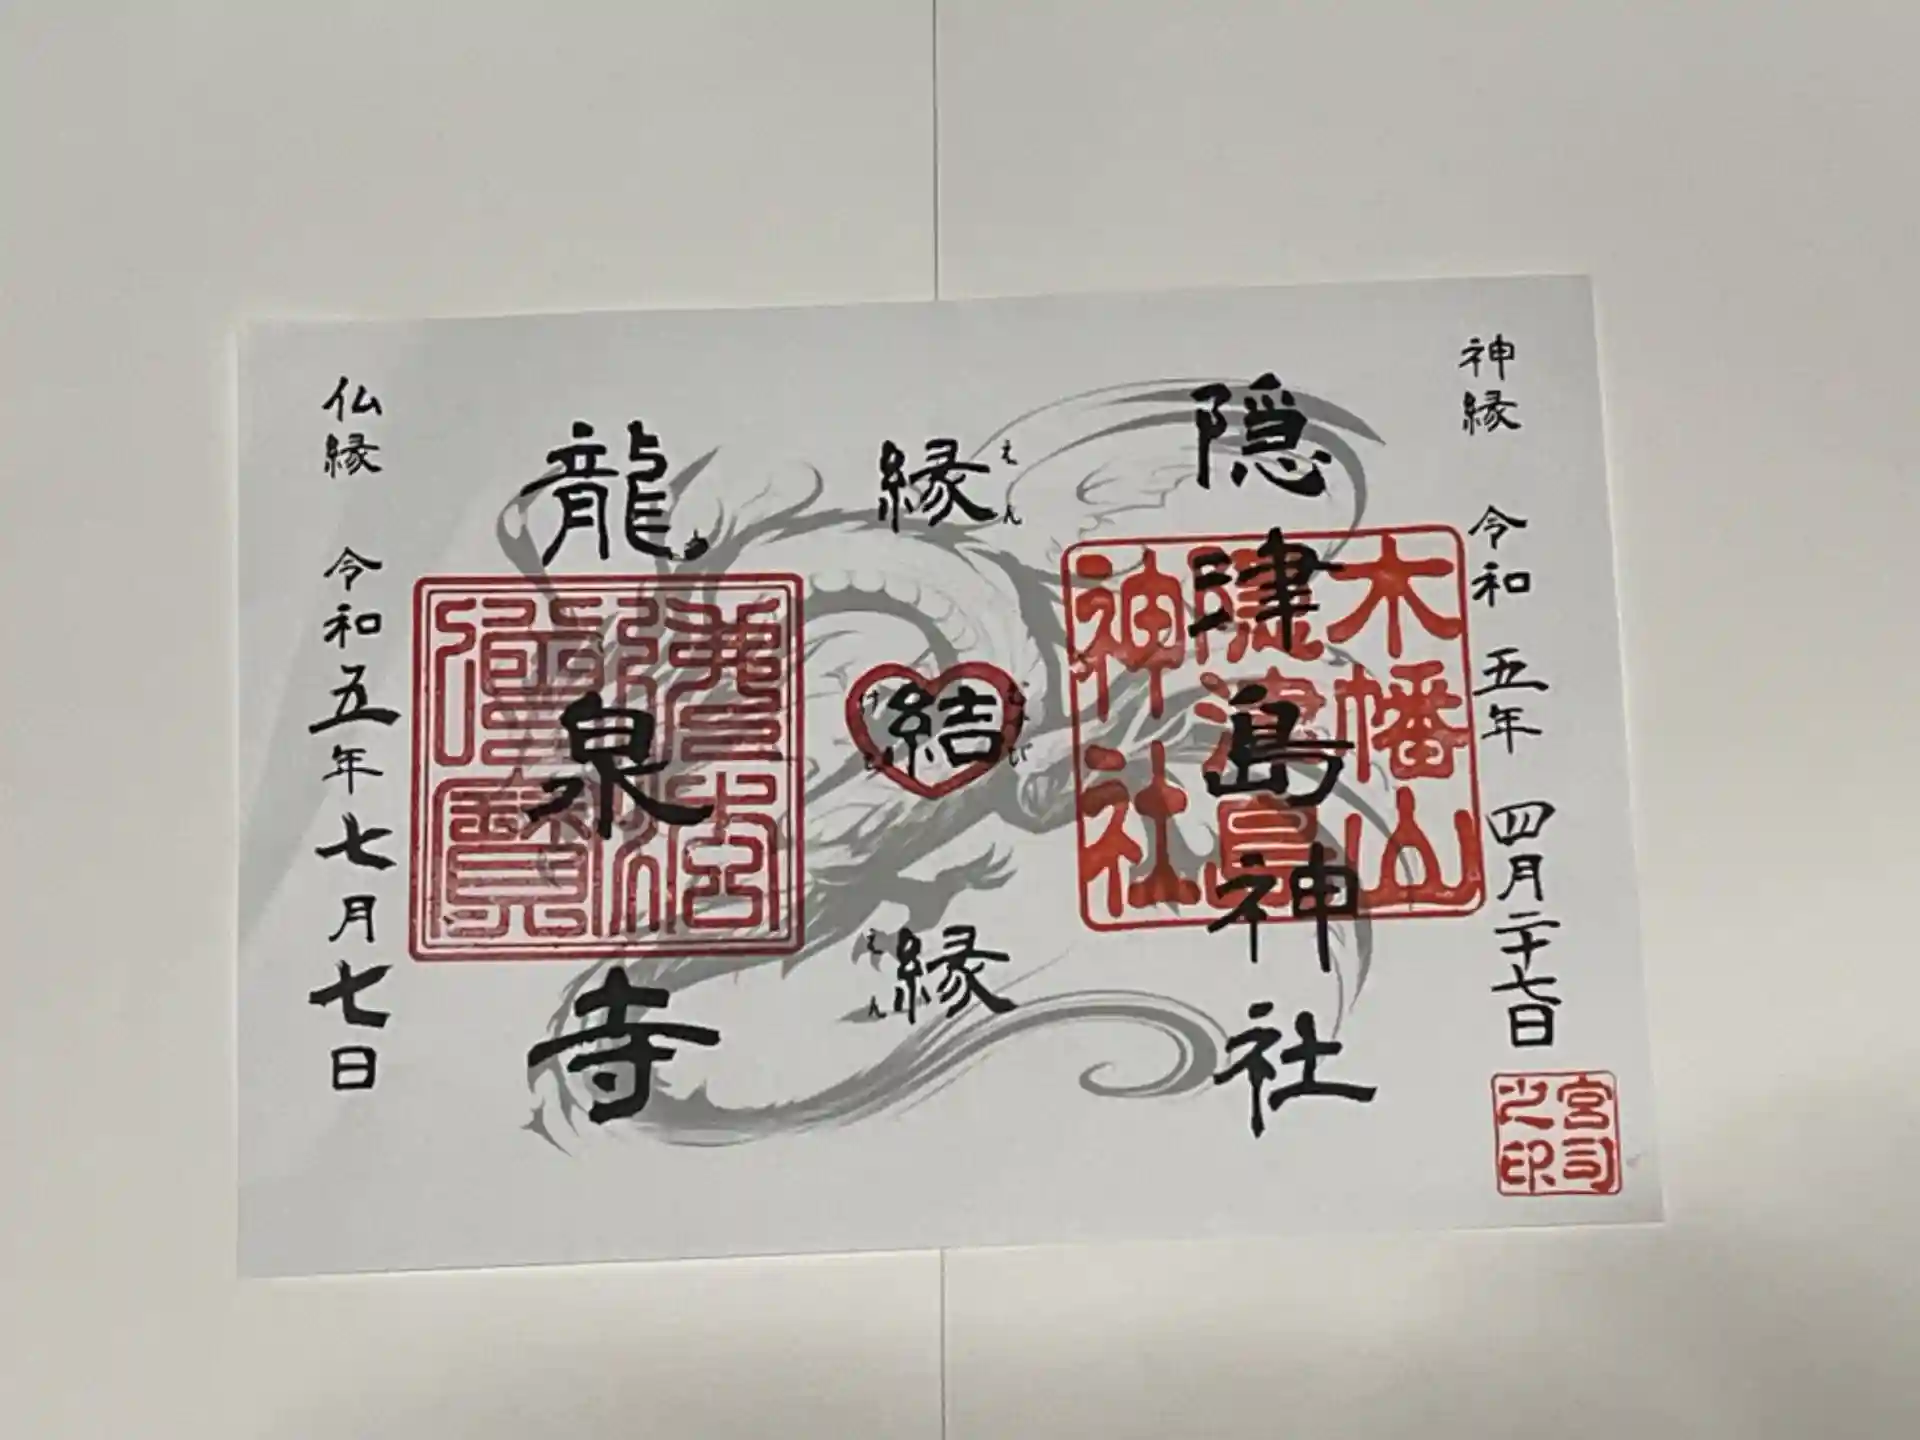 神縁 令和五年 四月二十七日
隠津島神社
木幡山
隠津島
神社
宮司
之印
縁結縁
えん
むすび
けち
えん
龍泉寺
佛法
僧寶
仏縁 令和五年七月七日